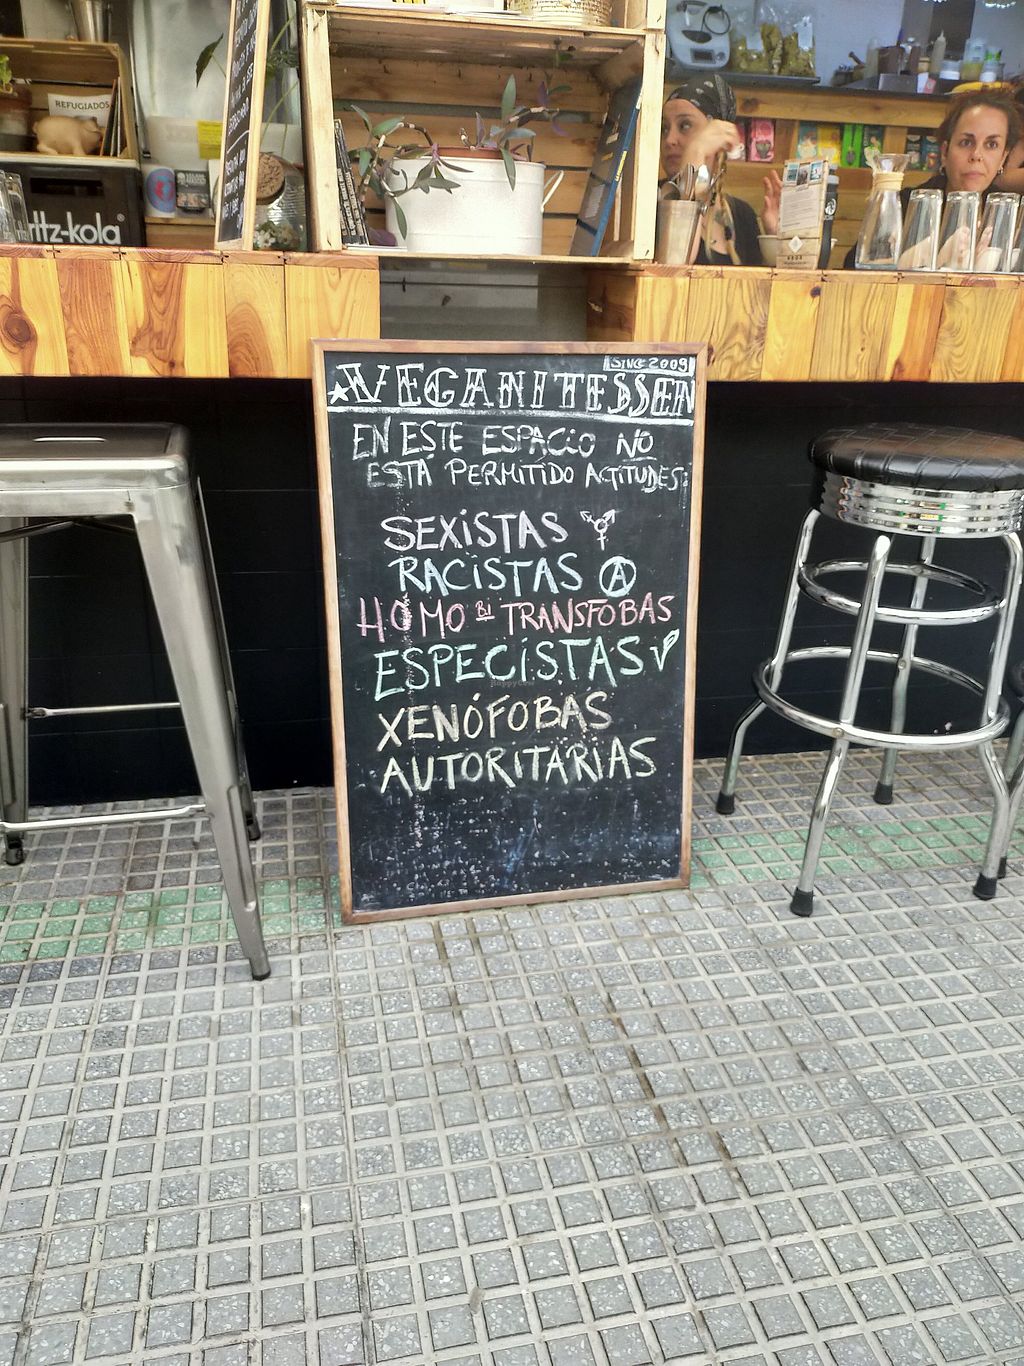 REFUGIADOS
ritz-kola
SINCE 2009
VEGANITESSEN
EN ESTE ESPACIO NO
ESTA PERMITIDO ACTITUDES:
SEXISTAS
RACISTAS Ⓐ
HOMO BI TRANSFOBAS
ESPECISTAS
XENÓFOBAS
AUTORITARIAS